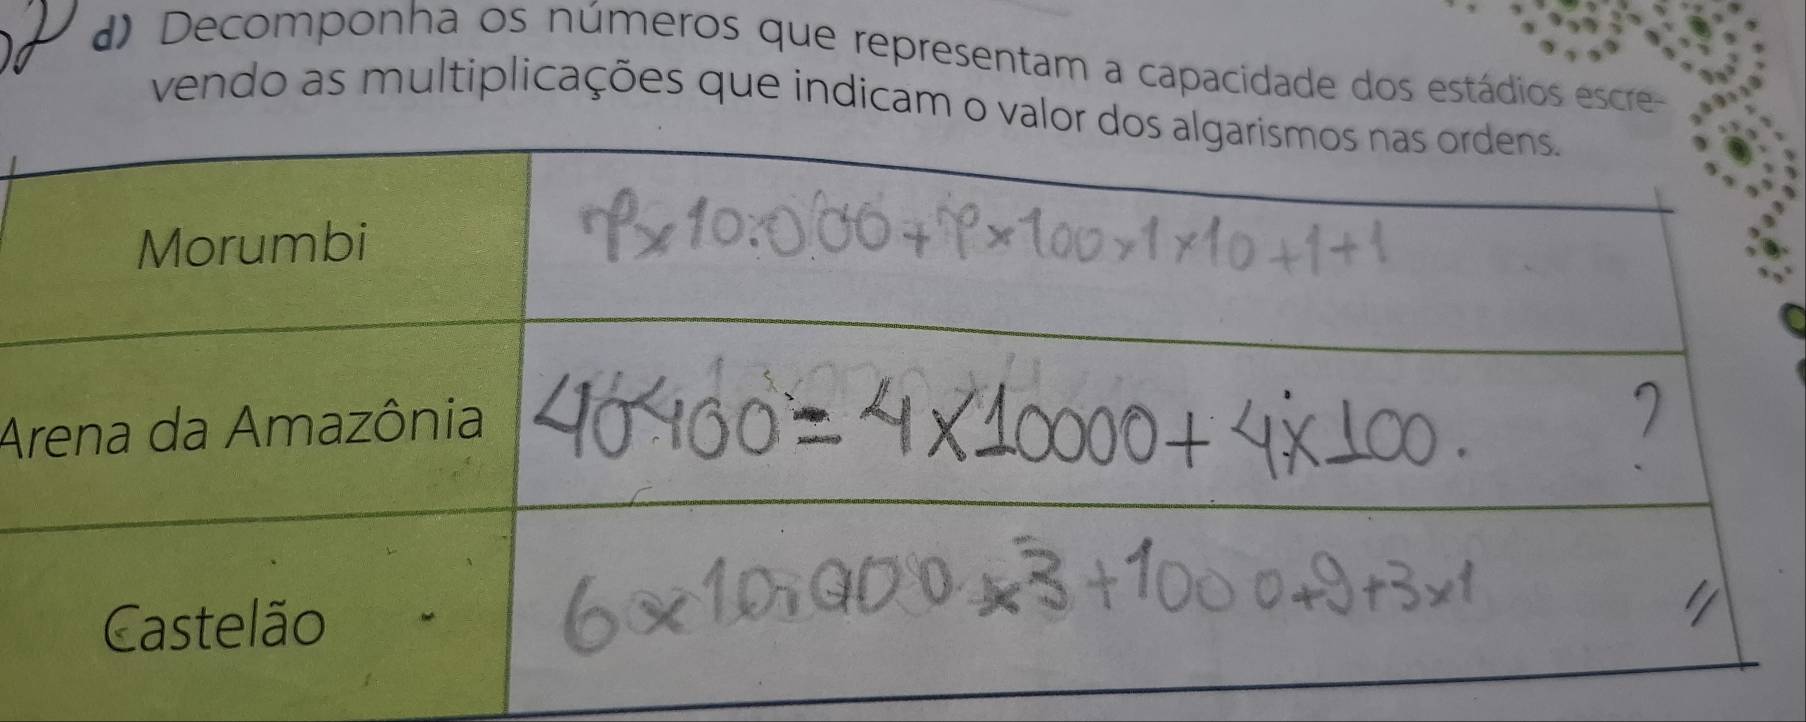 d) Decomponha os números que representam a capacidade dos estádios escre-
vendo as multiplicações que indicam o valor dos algarismos nas ordens.
Morumbi
x10.000+ x100x1x10+1+1
Arena da Amazônia
40400=4x10000+4x100. ?
Castelão
6x10.000x3+1000+9+3x1